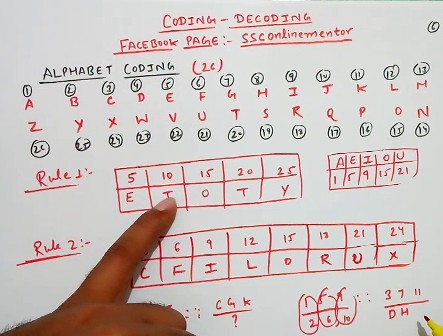 CODING - DECODING
FACEBOOK PAGE:- SSConlinementor
6
ALPHABET CODING (26)
1 2 3 4 5 6 7 8 9 10 11 12 13
A B C D E F G H I J K L M
Z Y X W V U T S R Q P O N
26 25 24 23 22 21 20 19 18 17 16 15 14
Rule 1:-
5 10 15 20 25
E J O T Y
A E I O U
1 5 9 15 21
Rule 2:-
6 9 12 15 18 21 24
C F I L O R U X
:: CGK
?
1 5 9 :: 3 7 11
2 6 10 DH